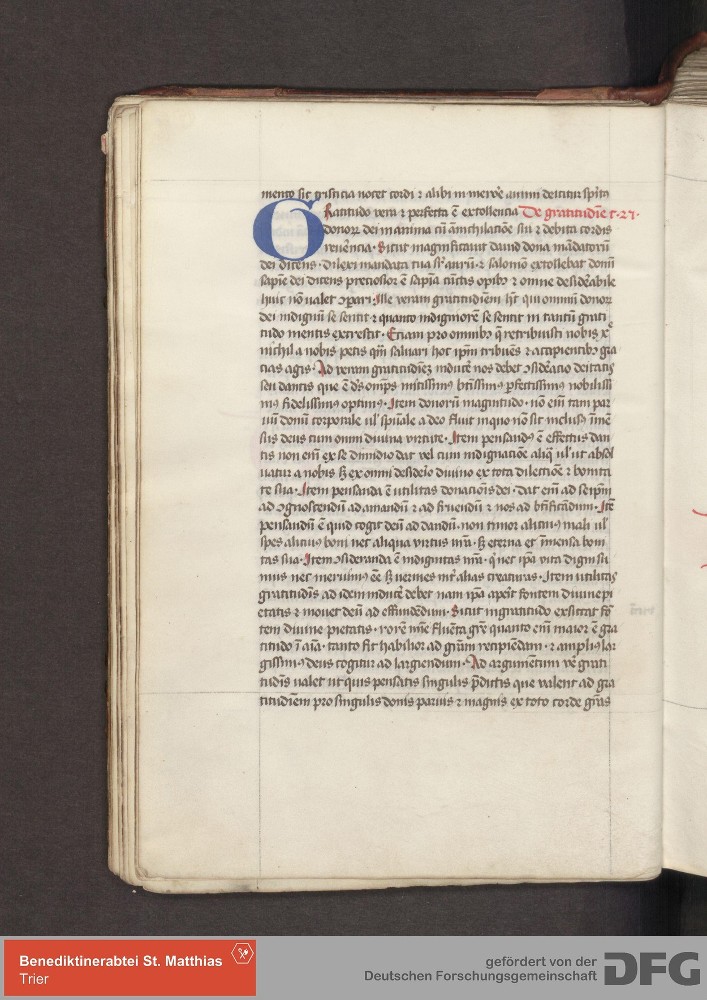 mento sic tristicia nocet cordi ⁊ alibi in merore animi deicitur sp̄ꝰ
GRatitudo vera ⁊ perfecta ē extollencia De gratitudīe c· 27·
donoꝝ dei in anima cū annichilacōne sui ⁊ debita cordis
reuēncia· Sicut magnificauit dauid dona mādatorū
dei dicens· dilexi mandata tua sr̄ aurū· ⁊ salomō extollebat donū
sapīe dei dicens preciosior ē sapīa cūctis opibꝰ ⁊ omne desidēabile
huic nō ualet ꝯpari· Ille veram gratitudīem hȳ qui omniū donoꝝ
dei indignū se sentit ⁊ quanto indigniorē se sentit in tantū grati
tudo mentis excrescit· Eciam pro omnibꝰ q̄ retribuisti nobis xp̄e
nichil a nobis petis qm̄ saluari hoc ip̄m tribuēs ⁊ accipientibꝰ gra
cias agis· Ad veram gratitudīeꝫ inducē nos debet ꝯsidēacio deitatis
seu dantis que ē dn̄s om̄ps mitissimꝰ btīssimꝰ ꝑfectissimꝰ nobilissi
mꝰ fidelissimꝰ optimꝰ· Item donorū magnitudo· nō eīm tam par
uū donū corporale ul' spūale a deo fluit in quo nō sit inclusꝰ īmē
sus deus cum omni diuina virtute· Item pensandꝰ ē effectus dan
tis non enī ex se dimidio dat vel cum indignacōne aliq̄ ul' ut absol
uatur a nobis sꝫ ex omni desidēio diuino ex tota dilectiōe ⁊ bonita
te sua· Item pensanda ē utilitas donacionis dei· dat enī ad seip̄m
ad ꝯgnoscendū ad amandū ⁊ ad fruendū ⁊ nos ad btīficādum· Itē
pensandū ē quid cogit deū ad dandū· non timor alicuiꝰ mali ul'
spes alicuiꝰ boni nec aliqua virtus nr̄a· sꝫ eterna et īmensa boni
tas sua· Item ꝯsideranda ē indignitas nr̄a· q̄ nec ip̄a vita digni su
mus nec meruimꝰ eē sꝫ vermes int̄ alias creaturas· Item utilitas
gratitudīs ad idem inducē debet nam ip̄a aperit fontem diuine pi
etatis ⁊ mouet deū ad effundēdum· Sicut ingratitudo exsiccat fō
tem diuine pietatis· rorē mīe fluēta gr̄e quanto enī maior ē gra
titudo ī aīa· tanto fit habilior ad grām recipiēdam· ⁊ ampliꝰ lar
gissimꝰ deus cogitur ad largiendum· Ad argumētum vē grati
tudīs ualet ut quis pensatis singulis p̄dictis que valent ad gra
titudīem pro singulis donis paruis ⁊ magnis ex toto corde gr̄as
Benediktinerabtei St. Matthias
Trier
gefördert von der
Deutschen Forschungsgemeinschaft DFG